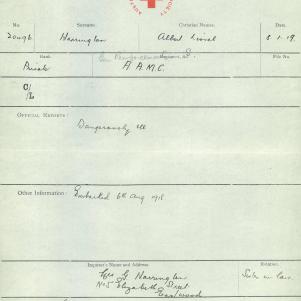 SOCIETY
No. Surname. Christian Names. Date.
2009B Harrington Albert Lionel 8.1.19.
Rank. Regiment, &c. File No.
Private A.A.M.C.
C/
/L
OFFICIAL REPORTS:
Dangerously ill
Other Information: Embarked 6th Aug 1918
Inquirer's Name and Address. Relation.
Mrs G. Harrington Sister in law.
No 5 Elizabeth Street
Eastwood